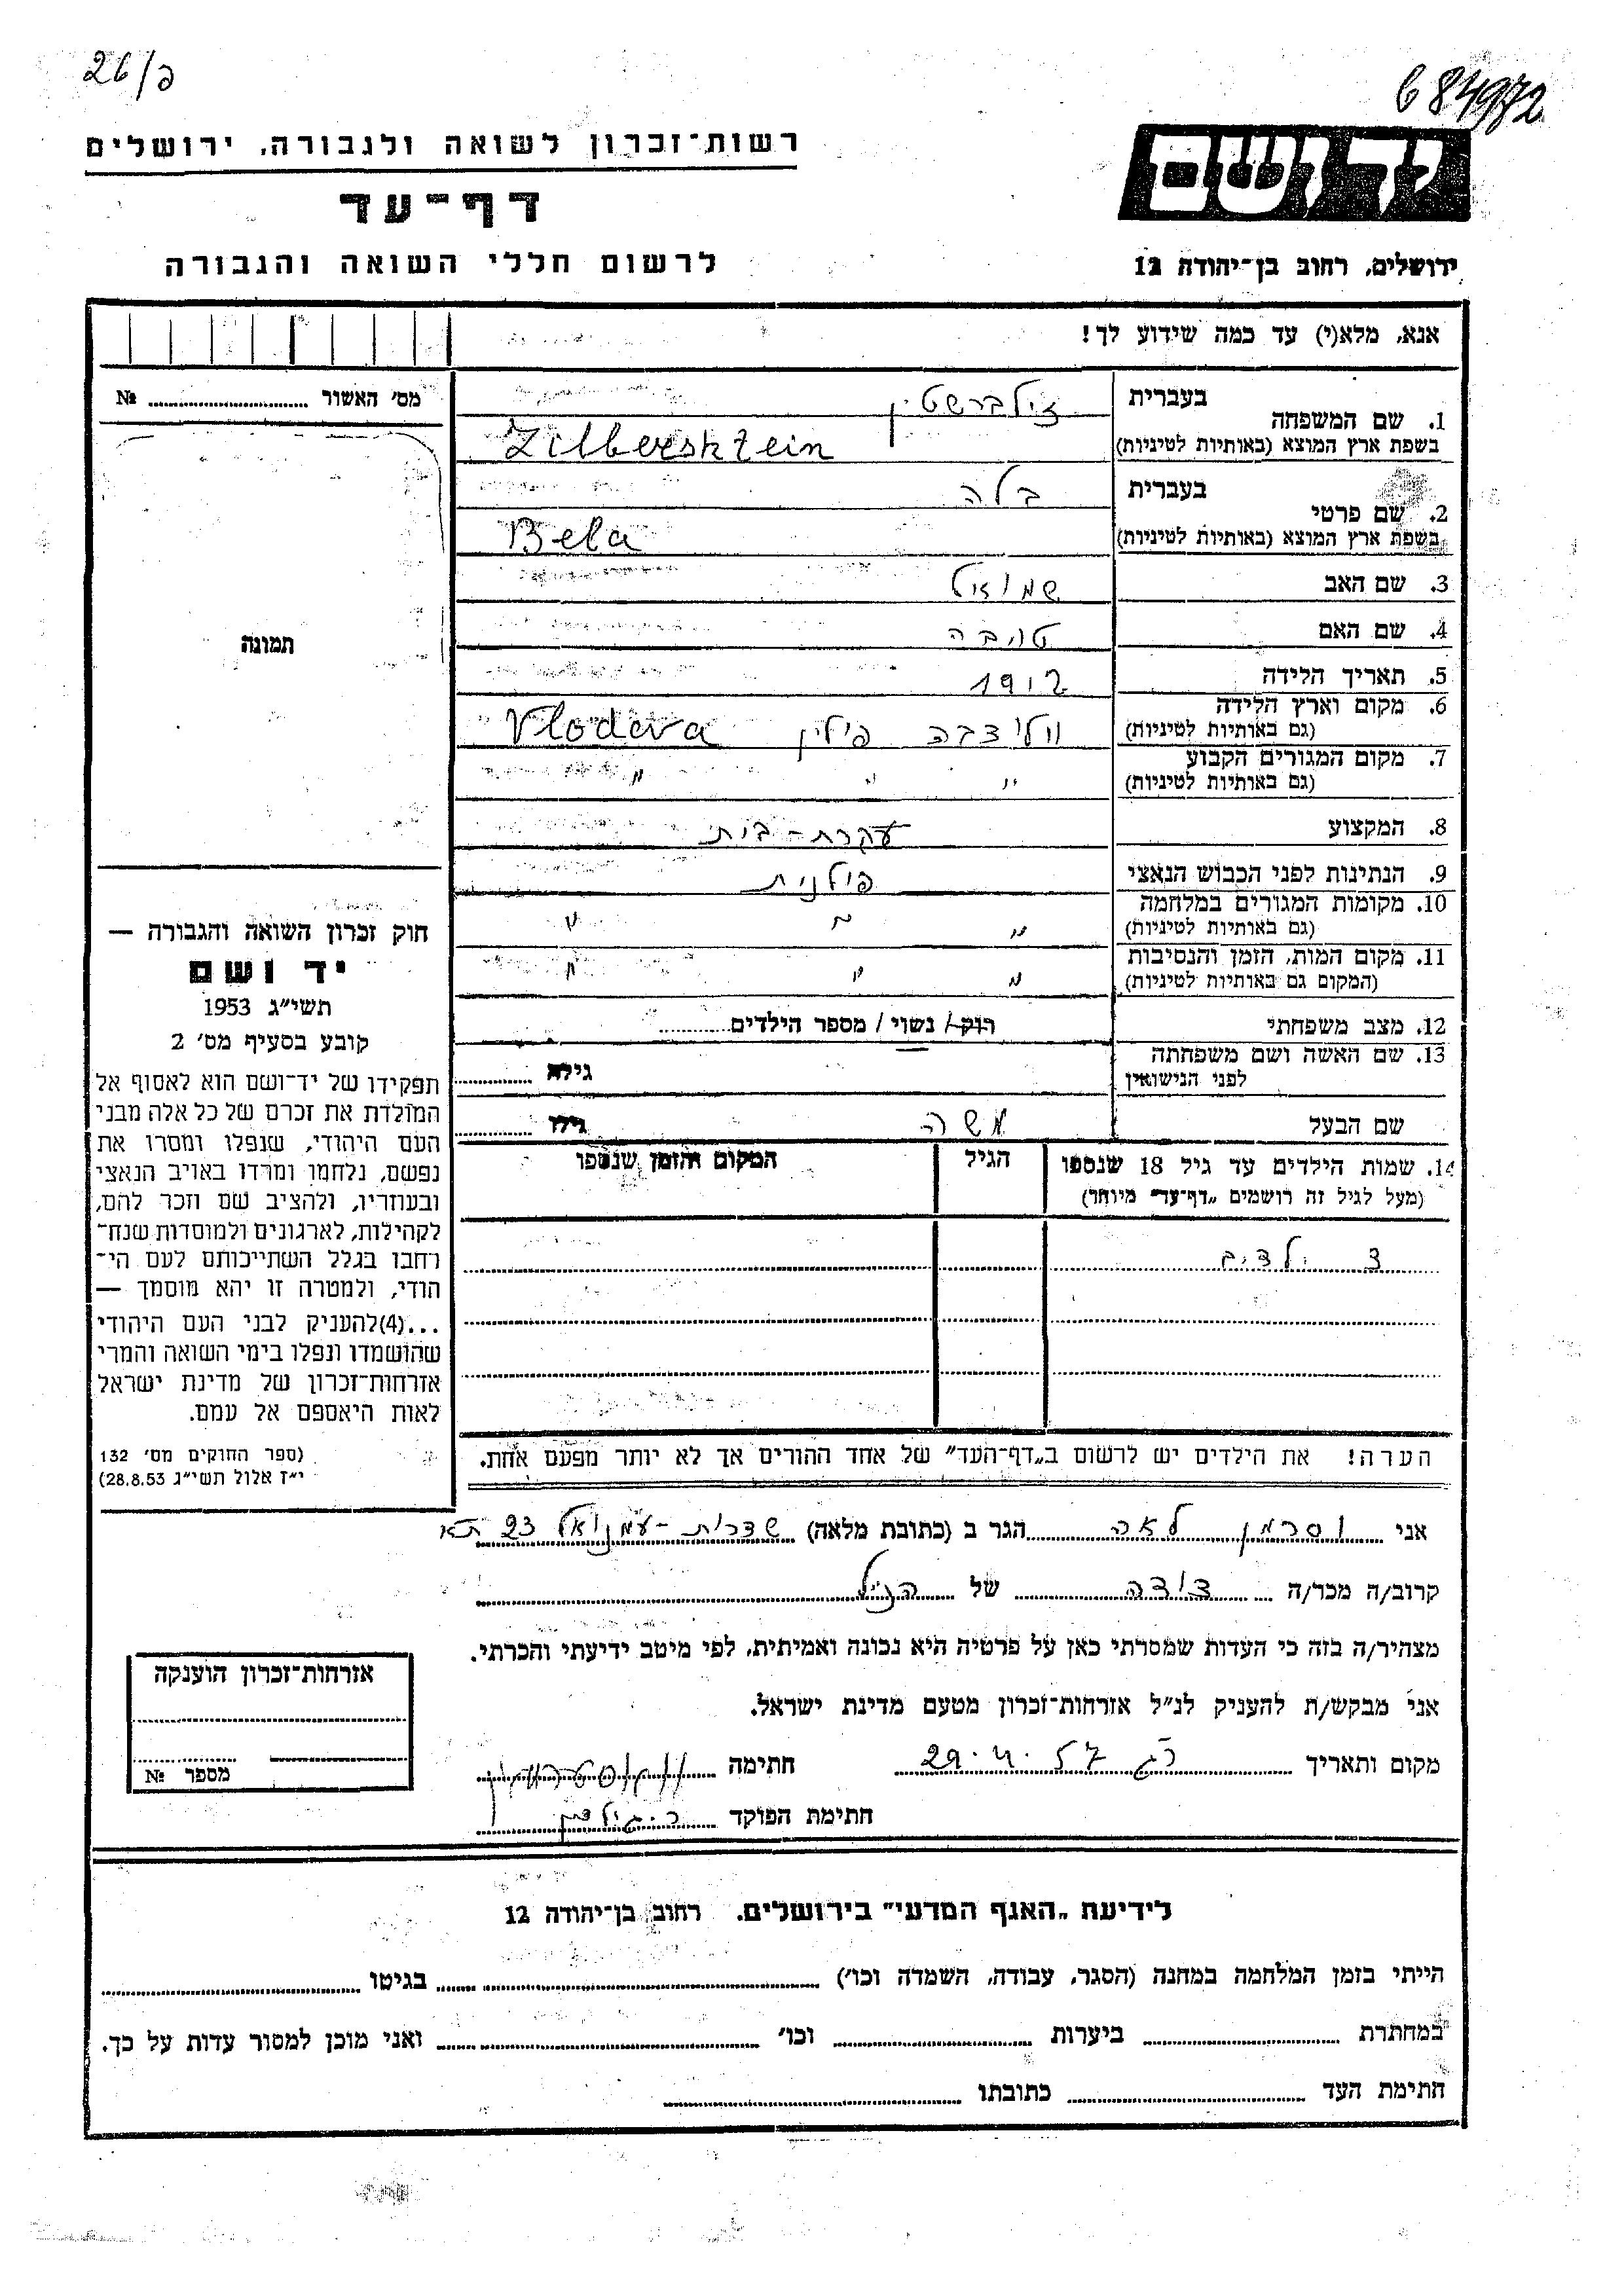 26/פ
684972
רשות־זכרון לשואה ולגבורה, ירושלים
דף־עד
לרשום חללי השואה והגבורה
יד ושם
ירושלים, רחוב בן־יהודה 12
אנא, מלא(י) עד כמה שידוע לך!
מס׳ האשור № ....................
תמונה
בעברית זילברשטין
1. שם המשפחה
בשפת ארץ המוצא (באותיות לטיניות) Zilbershtein
בעברית בלה
2. שם פרטי
בשפת ארץ המוצא (באותיות לטיניות) Bela
3. שם האב שמואל
4. שם האם טובה
5. תאריך הלידה 1912
6. מקום וארץ הלידה
(גם באותיות לטיניות) פולין Vlodava
7. מקום המגורים הקבוע
(גם באותיות לטיניות) " " "
8. המקצוע עקרת-בית
9. הנתינות לפני הכבוש הנאצי פולנית
10. מקומות המגורים במלחמה
(גם באותיות לטיניות) " " "
11. מקום המות, הזמן והנסיבות
(המקום גם באותיות לטיניות) " " "
12. מצב משפחתי רוק/ נשוי / מספר הילדים..........
13. שם האשה ושם משפחתה
לפני הנישואין גילה ..........
שם הבעל משה גילו ..........
14. שמות הילדים עד גיל 18 שנספו הגיל המקום והזמן שנספו
(מעל לגיל זה רושמים „דף־עד" מיוחד)
ילדים
הערה! את הילדים יש לרשום ב„דף־העד" של אחד ההורים אך לא יותר מפעם אחת.
חוק זכרון השואה והגבורה —
יד ושם
תשי״ג 1953
קובע בסעיף מס׳ 2
תפקידו של יד־ושם הוא לאסוף אל
המולדת את זכרם של כל אלה מבני
העם היהודי, שנפלו ומסרו את
נפשם, נלחמו ומרדו באויב הנאצי
ובעוזריו, ולהציב שם וזכר להם,
לקהילות, לארגונים ולמוסדות שנח־
רחבו בגלל השתייכותם לעם הי־
הודי, ולמטרה זו יהא מוסמך —
...(4)להעניק לבני העם היהודי
שהושמדו ונפלו בימי השואה והמרי
אזרחות־זכרון של מדינת ישראל
לאות היאספם אל עמם.
(ספר החוקים מס׳ 132
י״ז אלול תשי״ג 28.8.53)
אני וסרמן לאה הגר ב (כתובת מלאה) שדרות-עמנואל 23 תא
קרוב/ה מכר/ה דודה של הנ״ל
מצהיר/ה בזה כי העדות שמסרתי כאן על פרטיה היא נכונה ואמיתית, לפי מיטב ידיעתי והכרתי.
אני מבקש/ת להעניק לנ״ל אזרחות־זכרון מטעם מדינת ישראל.
מקום ותאריך רג 29.4.57 חתימה
חתימת הפוקד
אזרחות־זכרון הוענקה
מספר №
לידיעת „האגף המדעי" בירושלים, רחוב בן־יהודה 12
הייתי בזמן המלחמה במחנה (הסגר, עבודה, השמדה וכו׳) .................... בגיטו ....................
במחתרת .................... ביערות .................... וכו׳ .................... ואני מוכן למסור עדות על כך.
חתימת העד .................... כתובתו ....................